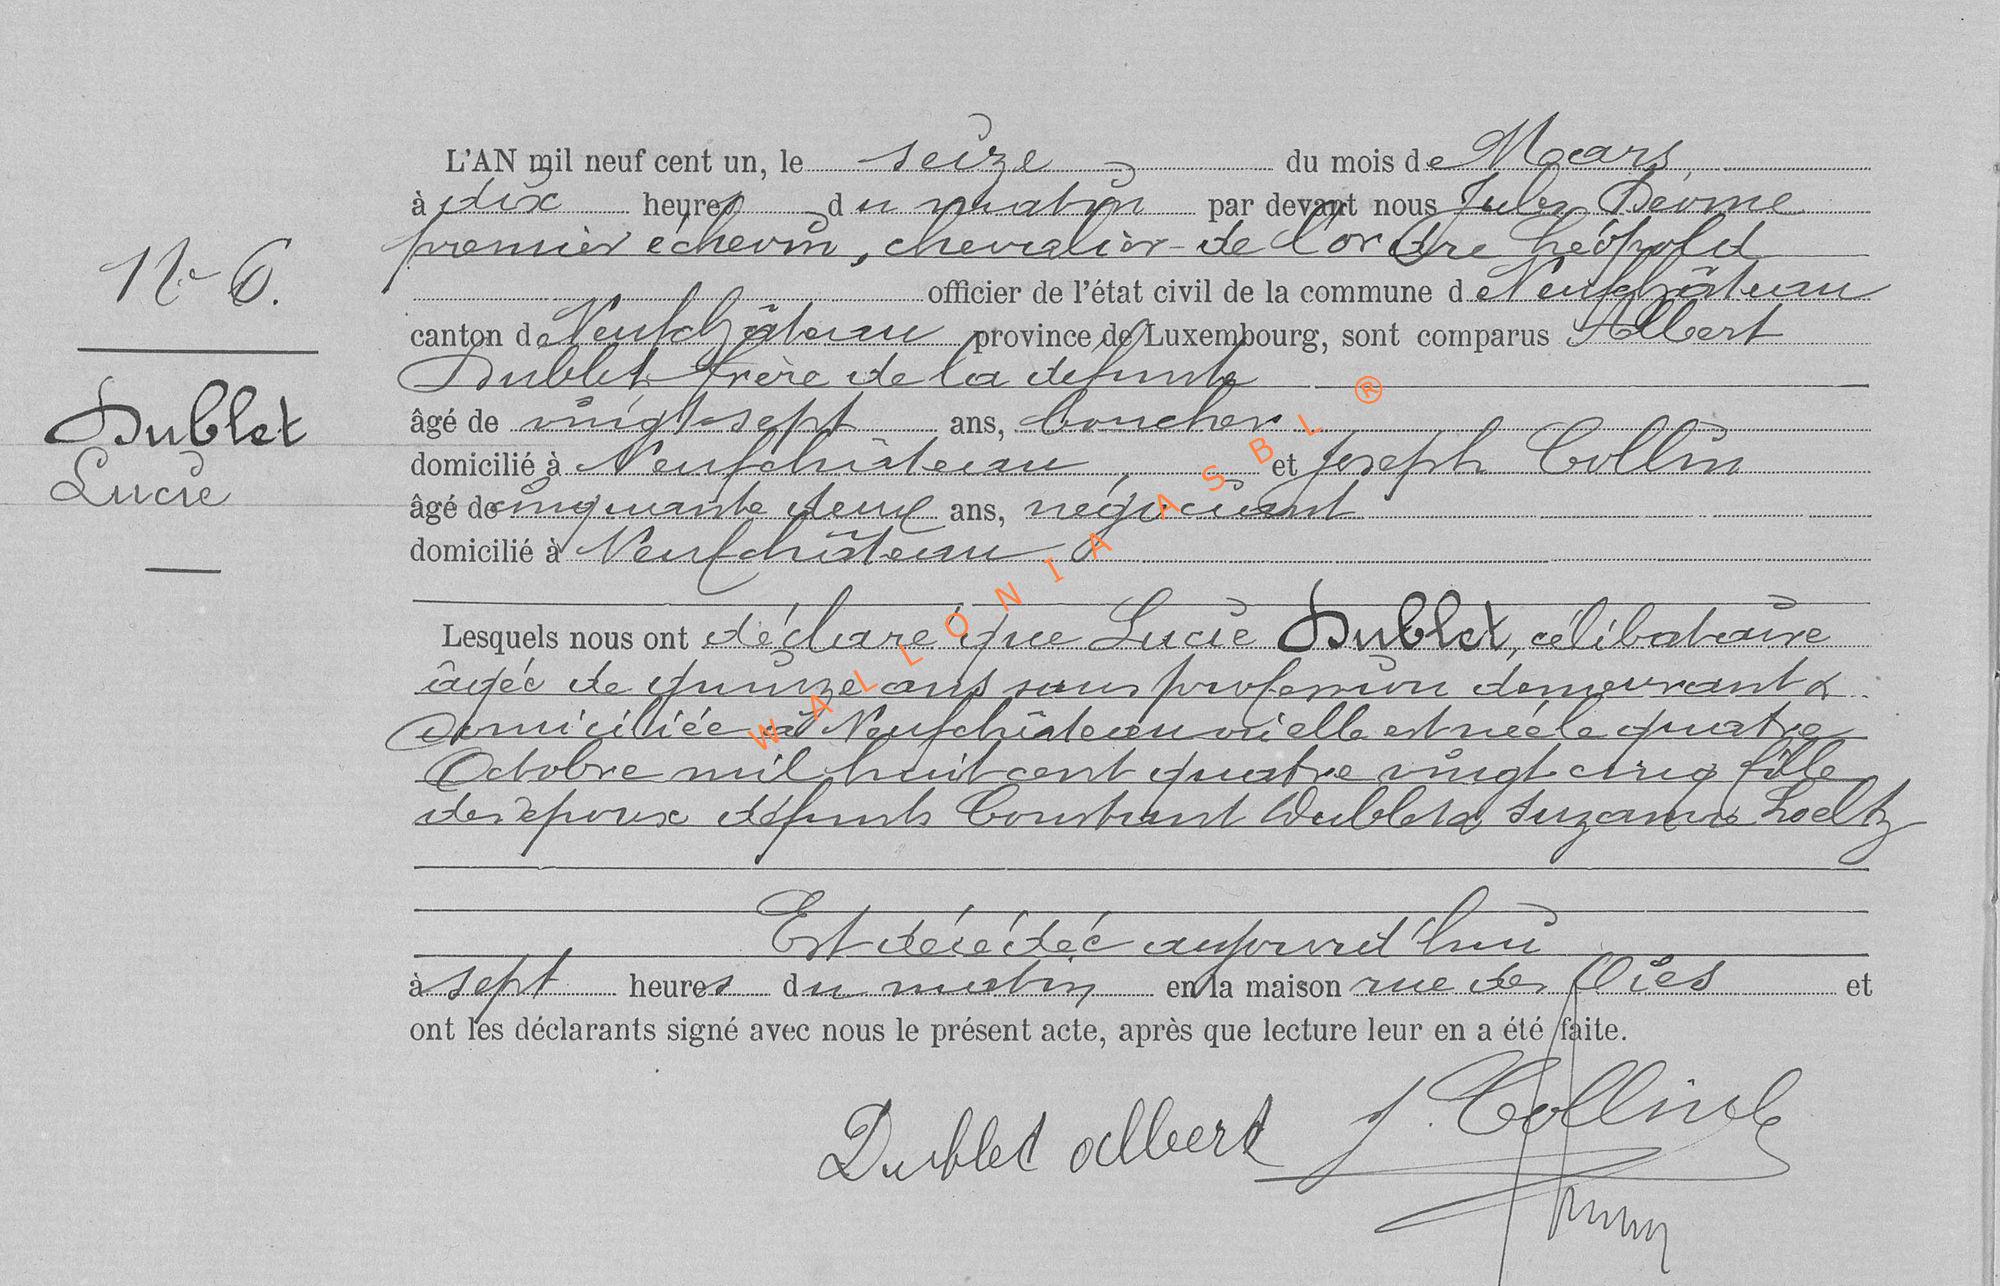 L'AN mil neuf cent un, le seize du mois de Mars
à dix heures du matin par devant nous Jules
premier échevin, chevalier de l'ordre Léopold
officier de l'état civil de la commune de Neufchâteau
N° 6.
canton de Neufchâteau province de Luxembourg, sont comparus Albert
Dublet frère de la défunte
Dublet
Lucie
âgé de vingt-sept ans, boucher
domicilié à Neufchâteau, et Joseph Collin
âgé de cinquante deux ans, négociant
domicilié à Neufchâteau
Lesquels nous ont déclaré que Lucie Dublet, célibataire
âgée de quinze ans sans profession demeurant &
domiciliée à Neufchâteau où elle est née le quatre
Octobre mil huit cent quatre vingt cinq fille
des époux défunts Constant Dublet & Suzanne Loeltz
Est décédée aujourd'hui
à sept heures du matin en la maison rue des Oies et
ont les déclarants signé avec nous le présent acte, après que lecture leur en a été faite.
Dublet Albert J. Collin
WALLONIA ASBL ®